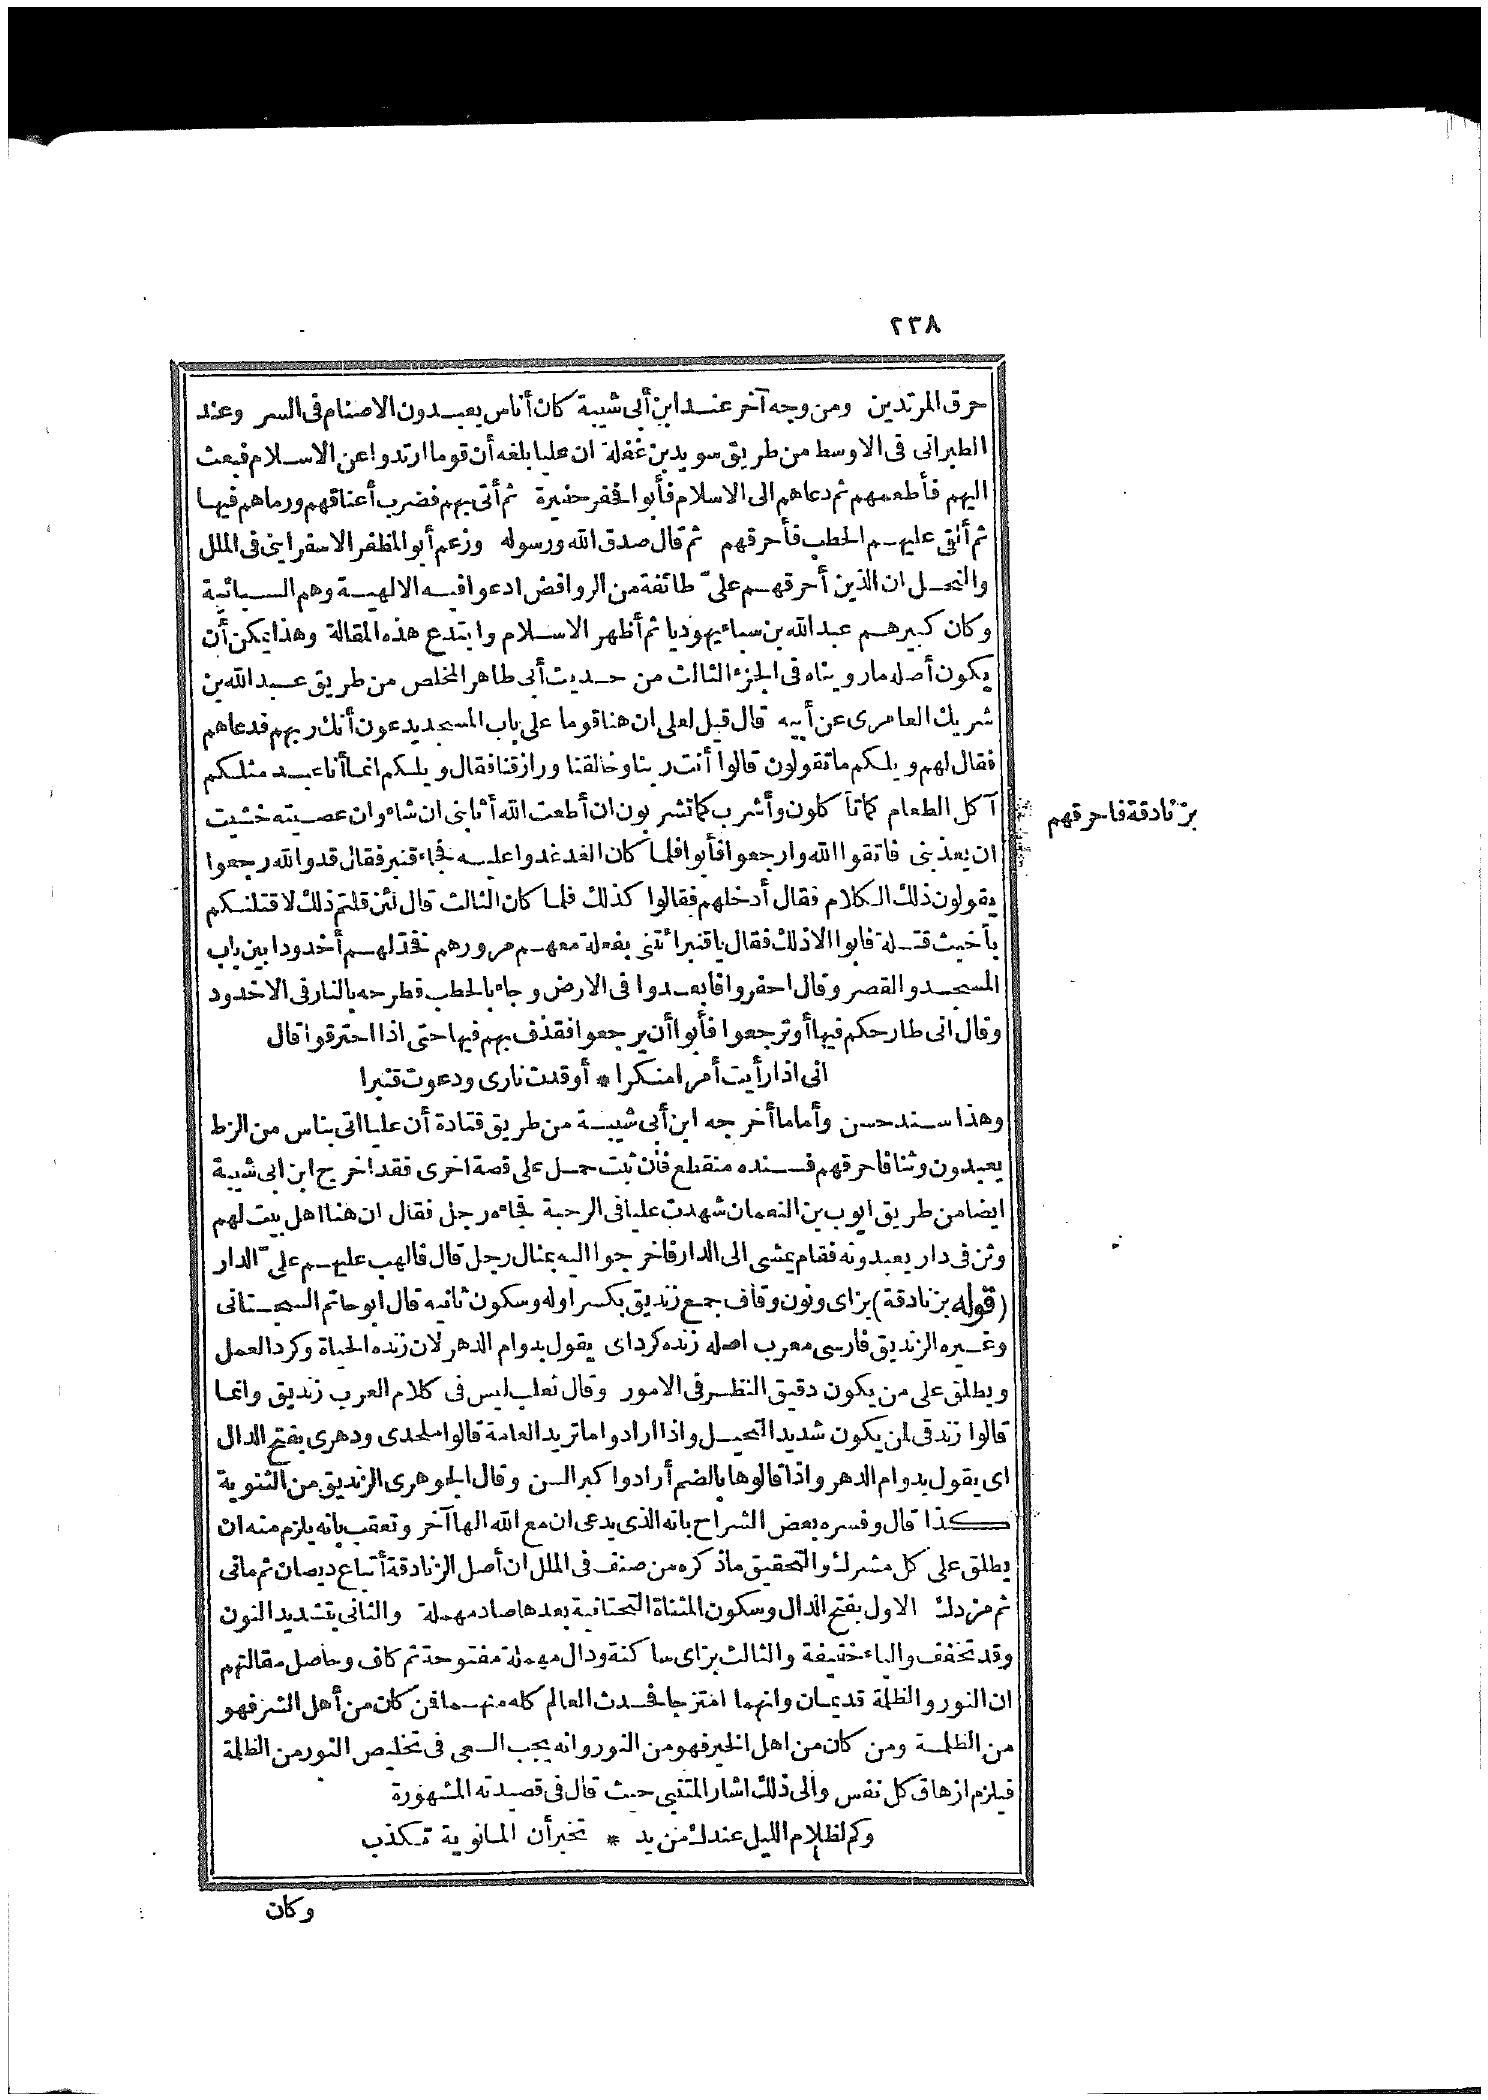 ٢٣٨
حرق المرتدين ومن وجه آخر عند ابن أبى شيبة كان أناس يعبدون الاصنام فى السر وعند
الطبرانى فى الاوسط من طريق سويد بن غفلة ان عليا بلغه أن قوما ارتدوا عن الاسلام فبعث
اليهم فأطعمهم ثم دعاهم الى الاسلام فأبوا فحفر حفيرة ثم أتى بهم فضرب أعناقهم ورماهم فيها
ثم ألقى عليهم الحطب فأحرقهم ثم قال صدق الله ورسوله وزعم أبو المظفر الاسفراينى فى الملل
والنحل ان الذين أحرقهم علىّ طائفة من الروافض ادعوا فيه الالهية وهم السبائية
وكان كبيرهم عبد الله بن سباء يهوديا ثم أظهر الاسلام وابتدع هذه المقالة وهذا يمكن أن
يكون أصله ما رويناه فى الجزء الثالث من حديث أبى طاهر المخلص من طريق عبد الله بن
شريك العامرى عن أبيه قال قيل لعلى ان هنا قوما على باب المسجد يدعون أنك ربهم فدعاهم
فقال لهم ويلكم ما تقولون قالوا أنت ربنا وخالقنا ورازقنا فقال ويلكم انما أنا عبد مثلكم
آكل الطعام كما تأكلون وأشرب كما تشربون ان أطعت الله أثابنى ان شاء وان عصيته خشيت
ان يعذبنى فاتقوا الله وارجعوا فأبوا فلما كان الغد غدوا عليه فجاء قنبر فقال قد والله رجعوا
يقولون ذلك الكلام فقال أدخلهم فقالوا كذلك فلما كان الثالث قال لئن قلتم ذلك لاقتلنكم
بأخبث قتلة فابوا الا ذلك فقال يا قنبر ائتنى بفعلة معهم مرورهم فخذ لهم أخدودا بين باب
المسجد والقصر وقال احفروا فابعدوا فى الارض وجاء بالحطب فطرحه بالنار فى الاخدود
وقال انى طارحكم فيها أو ترجعوا فأبوا أن يرجعوا فقذف بهم فيها حتى اذا احترقوا قال
انى اذا رأيت أمرا منكرا * أوقدت نارى ودعوت قنبرا
وهذا سند حسن وأما ما أخرجه ابن أبى شيبة من طريق قتادة أن عليا اتى بناس من الزط
يعبدون وثنا فاحرقهم فسنده منقطع فان ثبت حمل على قصة اخرى فقد اخرج ابن ابى شيبة
ايضا من طريق ايوب بن النعمان شهدت عليا فى الرحبة فجاءه رجل فقال ان هنا اهل بيت لهم
وثن فى دار يعبدونه فقام يمشى الى الدار فاخرجوا اليه بمثال رجل قال فالهب عليهم علىّ الدار
(قوله بزنادقة) بزاى ونون وقاف جمع زنديق بكسر اوله وسكون ثانيه قال ابو حاتم السجستانى
وغيره الزنديق فارسى معرب اصله زنده كرداى يقول بدوام الدهر لان زنده الحياة وكرد العمل
ويطلق على من يكون دقيق النظر فى الامور وقال ثعلب ليس فى كلام العرب زنديق وانما
قالوا زندقى لمن يكون شديد التحيل واذا ارادوا ما تريد العامة قالوا ملحدى ودهرى بفتح الدال
اى يقول بدوام الدهر واذا قالوها بالضم أرادوا كبر السن وقال الجوهرى الزنديق من الثنوية
كذا قال وفسره بعض الشراح بانه الذى يدعى ان مع الله الها آخر وتعقب بانه يلزم منه ان
يطلق على كل مشرك والتحقيق ما ذكره من صنف فى الملل ان أصل الزنادقة أتباع ديصان ثم مانى
ثم مزدك الاول بفتح الدال وسكون المثناة التحتانية بعدها صاد مهملة والثانى بتشديد النون
وقد تخفف والياء خفيفة والثالث بزاى ساكنة ودال مهملة مفتوحة ثم كاف وحاصل مقالتهم
ان النور والظلمة قديمان وانهما امتزجا فحدث العالم كله منهما فمن كان من أهل الشر فهو
من الظلمة ومن كان من اهل الخير فهو من النور وانه يجب السعى فى تخليص النور من الظلمة
فيلزم ازهاق كل نفس والى ذلك اشار المتنبى حيث قال فى قصيدته المشهورة
وكم لظلام الليل عندك من يد * تخبر أن المانوية تكذب
وكان
بزنادقة فاحرقهم